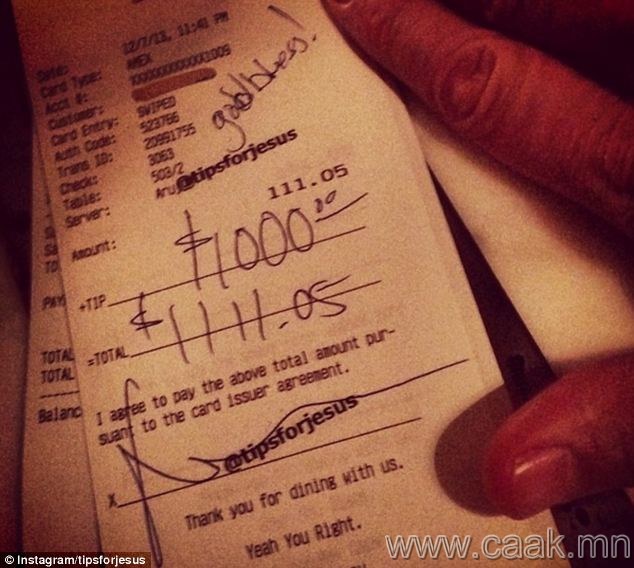 Date: 12/7/13, 11:41 PM
Card Type: AMEX
Acct #: XXXXXXXXXXX1009
Customer:
Card Entry: SWIPED
Auth Code: 523766
Trans ID: 20991755
Check: 3063
Table: 503/2
Server: Aru
god bless!
@tipsforjesus
Amount: 111.05
+TIP $1000.00
=TOTAL $1111.05
I agree to pay the above total amount pur-
suant to the card issuer agreement.
X
@tipsforjesus
Thank you for dining with us.
Yeah You Right.
TO
PAY
TOTAL
TOTAL
Balanc
© Instagram/tipsforjesus
www.caak.mn